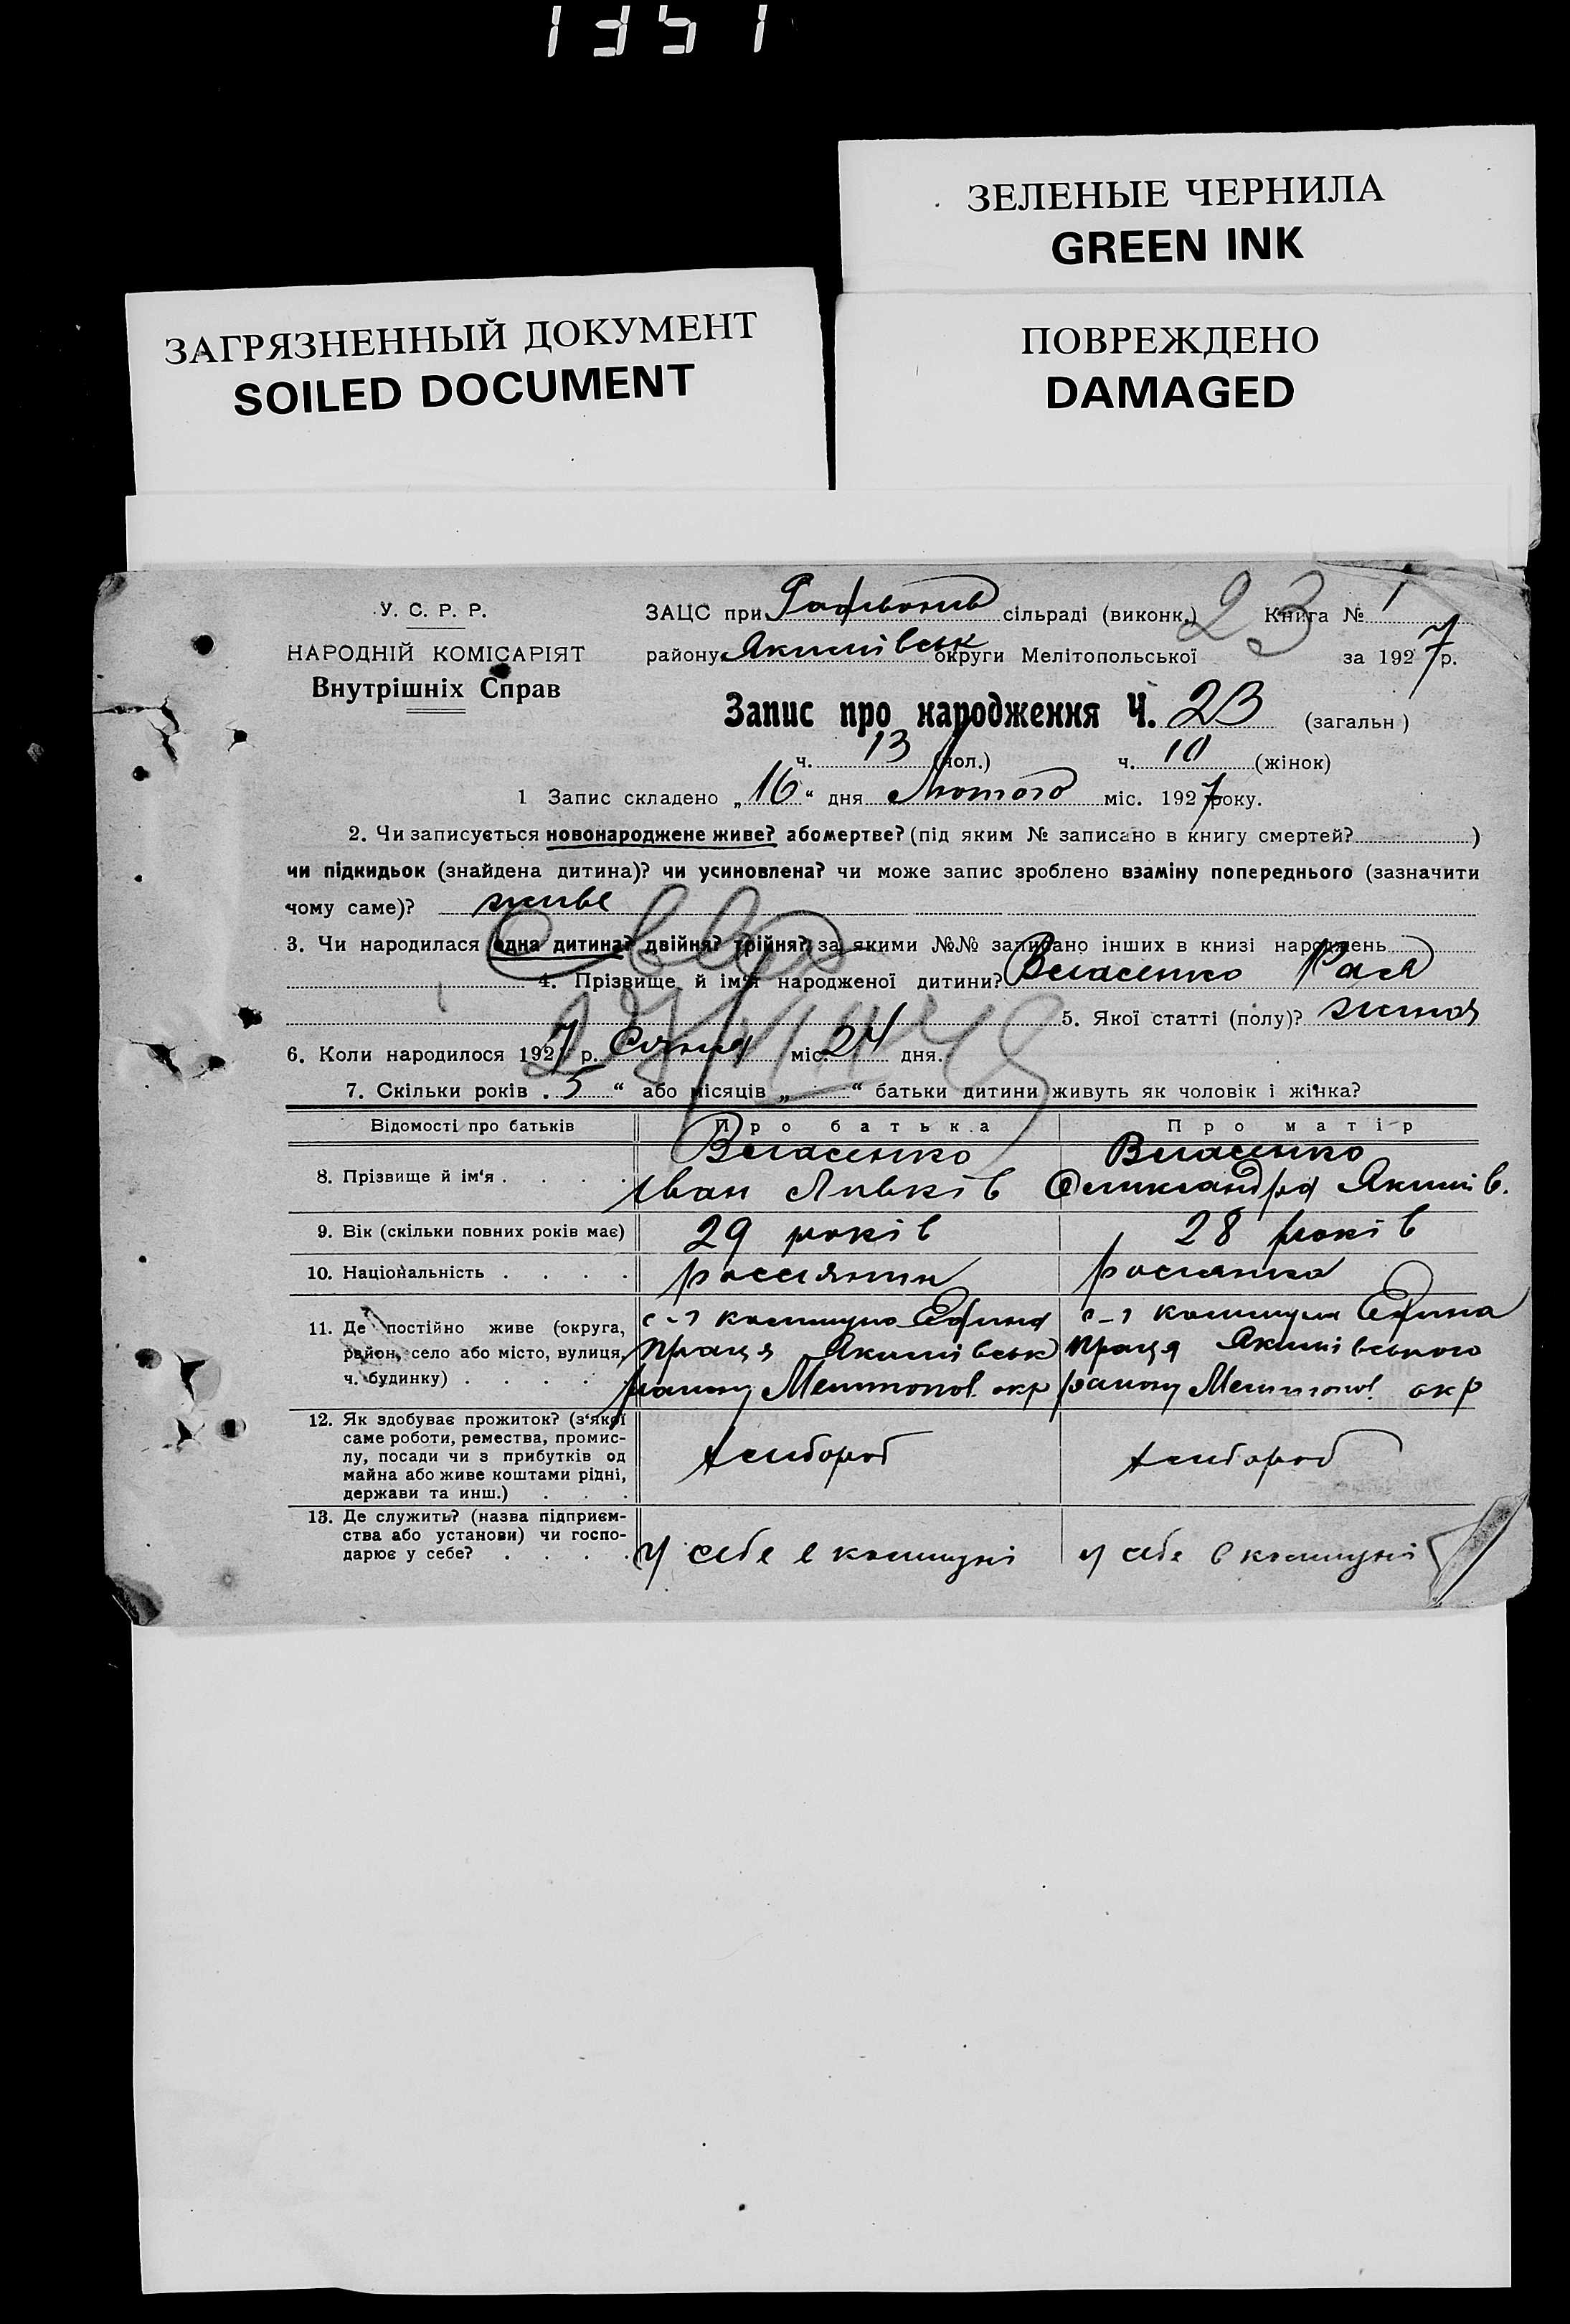 1351
ЗЕЛЕНЫЕ ЧЕРНИЛА
GREEN INK
ЗАГРЯЗНЕННЫЙ ДОКУМЕНТ
SOILED DOCUMENT
ПОВРЕЖДЕНО
DAMAGED
У. С. Р. Р.
НАРОДНІЙ КОМІСАРІЯТ
Внутрішніх Справ
ЗАЦС при сільраді (виконк.) 23 Книга № 1
району Якимівськ округи Мелітопольської за 1927 р.
Запис про народження Ч. 23 (загальн)
ч. 13 (чол.) ч. 10 (жінок)
1 Запис складено „16“ дня Лютого міс. 1927 року.
2. Чи записується новонароджене живе? або мертве? (під яким № записано в книгу смертей? )
чи підкидьок (знайдена дитина)? чи усиновлена? чи може запис зроблено взаміну попереднього (зазначити
чому саме)? живе
3. Чи народилася одна дитина? двійня? трійня? за якими №№ записано інших в книзі народжень
4. Прізвище й ім'я народженої дитини? Власенко Рая
5. Якої статті (полу)? жиноя
6. Коли народилося 1927 р. Січня міс. 24 дня.
7. Скільки років . 5 “ або місяців „ “ батьки дитини живуть як чоловік і жінка?
Відомості про батьків Про батька Про матір
8. Прізвище й ім'я . . . . Власенко Власенко
Іван Якимів.
9. Вік (скільки повних років має) 29 років 28 років
10. Національність . . . . россиянин росиянка
11. Де постійно живе (округа, район, село або місто, вулиця, ч. будинку) . . . . .
с-г комуна Едина праця Якимівськ району Мелитопол. окр
с-г комуна Едина праця Якимівського району Мелитопол. окр
12. Як здобуває прожиток? (з'якої
саме роботи, ремества, промис-
лу, посади чи з прибутків од
майна або живе коштами рідні,
держави та инш.) . . .
хлибороб хлибороб
13. Де служить? (назва підприєм-
ства або установи) чи госпо-
дарює у себе? . . . .
у себе в комуні у себе в комуні